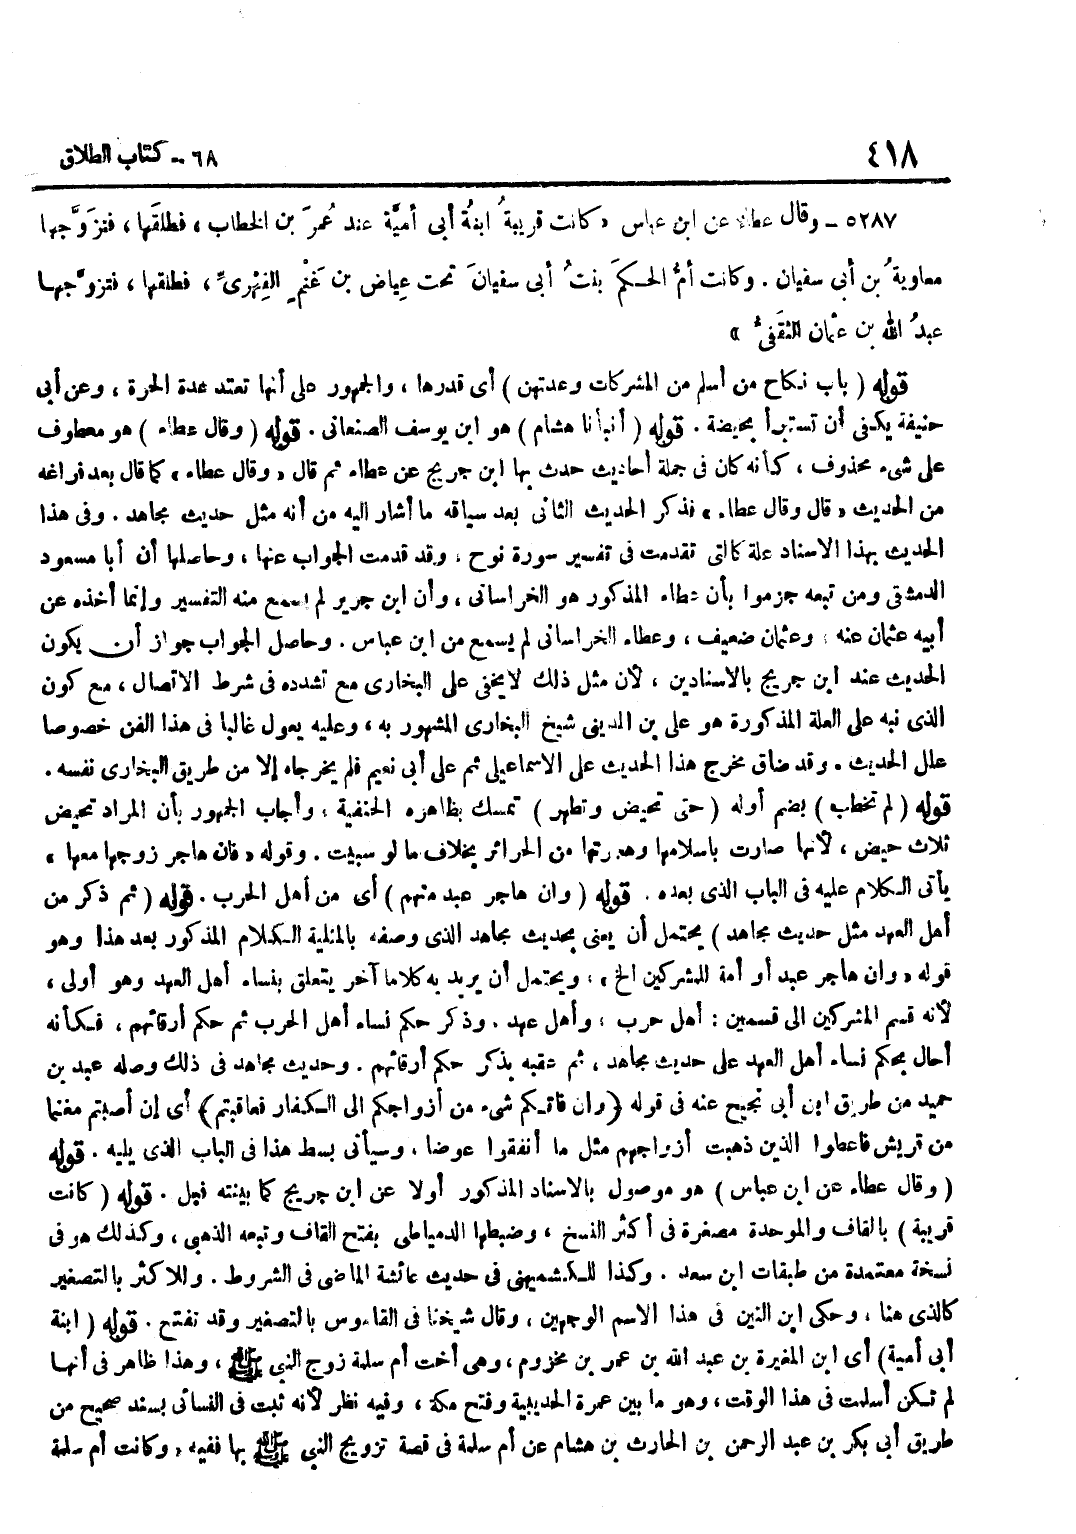 ٤١٨
٦٨ - كتاب الطلاق
٥٢٨٧ - وقال عطاء عن ابن عباس « كانت قريبةُ ابنةُ أبى أميَّة عند عُمرَ بن الخطاب ، فطلقَها ، فتزوَّجها
معاويةُ بن أبى سفيان . وكانت أمُّ الحكمَ بنتُ أبى سفيانَ تحت عِياض بن غَنْمٍ الفِهْرىِّ ، فطلقها ، فتزوَّجها
عبدُ الله بن عثمان الثقَفىُّ »
قوله ( باب نكاح من أسلم من المشركات وعدتهن ) أى قدرها ، والجمهور على أنها تعتد عدة الحرة ، وعن أبى
حنيفة يكفى أن تستبرأ بحيضة . قوله ( أنبأنا هشام ) هو ابن يوسف الصنعانى . قوله ( وقال عطاء ) هو معطوف
على شىء محذوف ، كأنه كان فى جملة أحاديث حدث بها ابن جريج عن عطاء ثم قال « وقال عطاء » كما قال بعد فراغه
من الحديث « قال وقال عطاء » فذكر الحديث الثانى بعد سياقه ما أشار اليه من أنه مثل حديث مجاهد . وفى هذا
الحديث بهذا الاسناد علة كالتى تقدمت فى تفسير سورة نوح ، وقد قدمت الجواب عنها ، وحاصلها أن أبا مسعود
الدمشقى ومن تبعه جزموا بأن عطاء المذكور هو الخراسانى ، وأن ابن جرير لم يسمع منه التفسير وإنما أخذه عن
أبيه عثمان عنه ، وعثمان ضعيف ، وعطاء الخراسانى لم يسمع من ابن عباس . وحاصل الجواب جواز أن يكون
الحديث عند ابن جريج بالاسنادين ، لأن مثل ذلك لا يخفى على البخارى مع تشدده فى شرط الاتصال ، مع كون
الذى نبه على العلة المذكورة هو على بن المدينى شيخ البخارى المشهور به ، وعليه يعول غالبا فى هذا الفن خصوصا
علل الحديث . وقد ضاق مخرج هذا الحديث على الاسماعيلى ثم على أبى نعيم فلم يخرجاه إلا من طريق البخارى نفسه .
قوله ( لم تخطب ) بضم أوله ( حتى تحيض وتطهر ) تمسك بظاهره الحنفية ، وأجاب الجمهور بأن المراد تحيض
ثلاث حيض ، لأنها صارت باسلامها وهجرتها من الحرائر بخلاف ما لو سبيت . وقوله « فان هاجر زوجها معها »
يأتى الكلام عليه فى الباب الذى بعده . قوله ( وان هاجر عبد منهم ) أى من أهل الحرب . قوله ( ثم ذكر من
أهل العهد مثل حديث مجاهد ) يحتمل أن يعنى بحديث مجاهد الذى وصفه بالمثلية الكلام المذكور بعد هذا وهو
قوله « وان هاجر عبد أو أمة للمشركين الخ » ، ويحتمل أن يريد به كلاما آخر يتعلق بنساء أهل العهد وهو أولى ،
لأنه قسم المشركين الى قسمين : أهل حرب ، وأهل عهد . وذكر حكم نساء أهل الحرب ثم حكم أرقائهم ، فكأنه
أحال بحكم نساء أهل العهد على حديث مجاهد ، ثم عقبه بذكر حكم أرقائهم . وحديث مجاهد فى ذلك وصله عبد بن
حميد من طريق ابن أبى نجيح عنه فى قوله ﴿ وان فاتكم شىء من أزواجكم الى الكفار فعاقبتم ﴾ أى إن أصبتم مغنما
من قريش فاعطوا الذين ذهبت أزواجهم مثل ما أنفقوا عوضا ، وسيأتى بسط هذا فى الباب الذى يليه . قوله
( وقال عطاء عن ابن عباس ) هو موصول بالاسناد المذكور أولا عن ابن جريج كما بينته قبل . قوله ( كانت
قريبة ) بالقاف والموحدة مصغرة فى أكثر النسخ ، وضبطها الدمياطى بفتح القاف وتبعه الذهبى ، وكذلك هو فى
نسخة معتمدة من طبقات ابن سعد . وكذا للكشميهنى فى حديث عائشة الماضى فى الشروط . وللاكثر بالتصغير
كالذى هنا ، وحكى ابن التين فى هذا الاسم الوجهين ، وقال شيخنا فى القاموس بالتصغير وقد تفتح . قوله ( ابنة
أبى أمية ) أى ابن المغيرة بن عبد الله بن عمر بن مخزوم ، وهى أخت أم سلمة زوج النبى ﷺ ، وهذا ظاهر فى أنها
لم تكن أسلمت فى هذا الوقت ، وهو ما بين عمرة الحديبية وفتح مكة ، وفيه نظر لأنه ثبت فى النسائى بسند صحيح من
طريق أبى بكر بن عبد الرحمن بن الحارث بن هشام عن أم سلمة فى قصة تزويج النبى ﷺ بها ففيه « وكانت أم سلمة